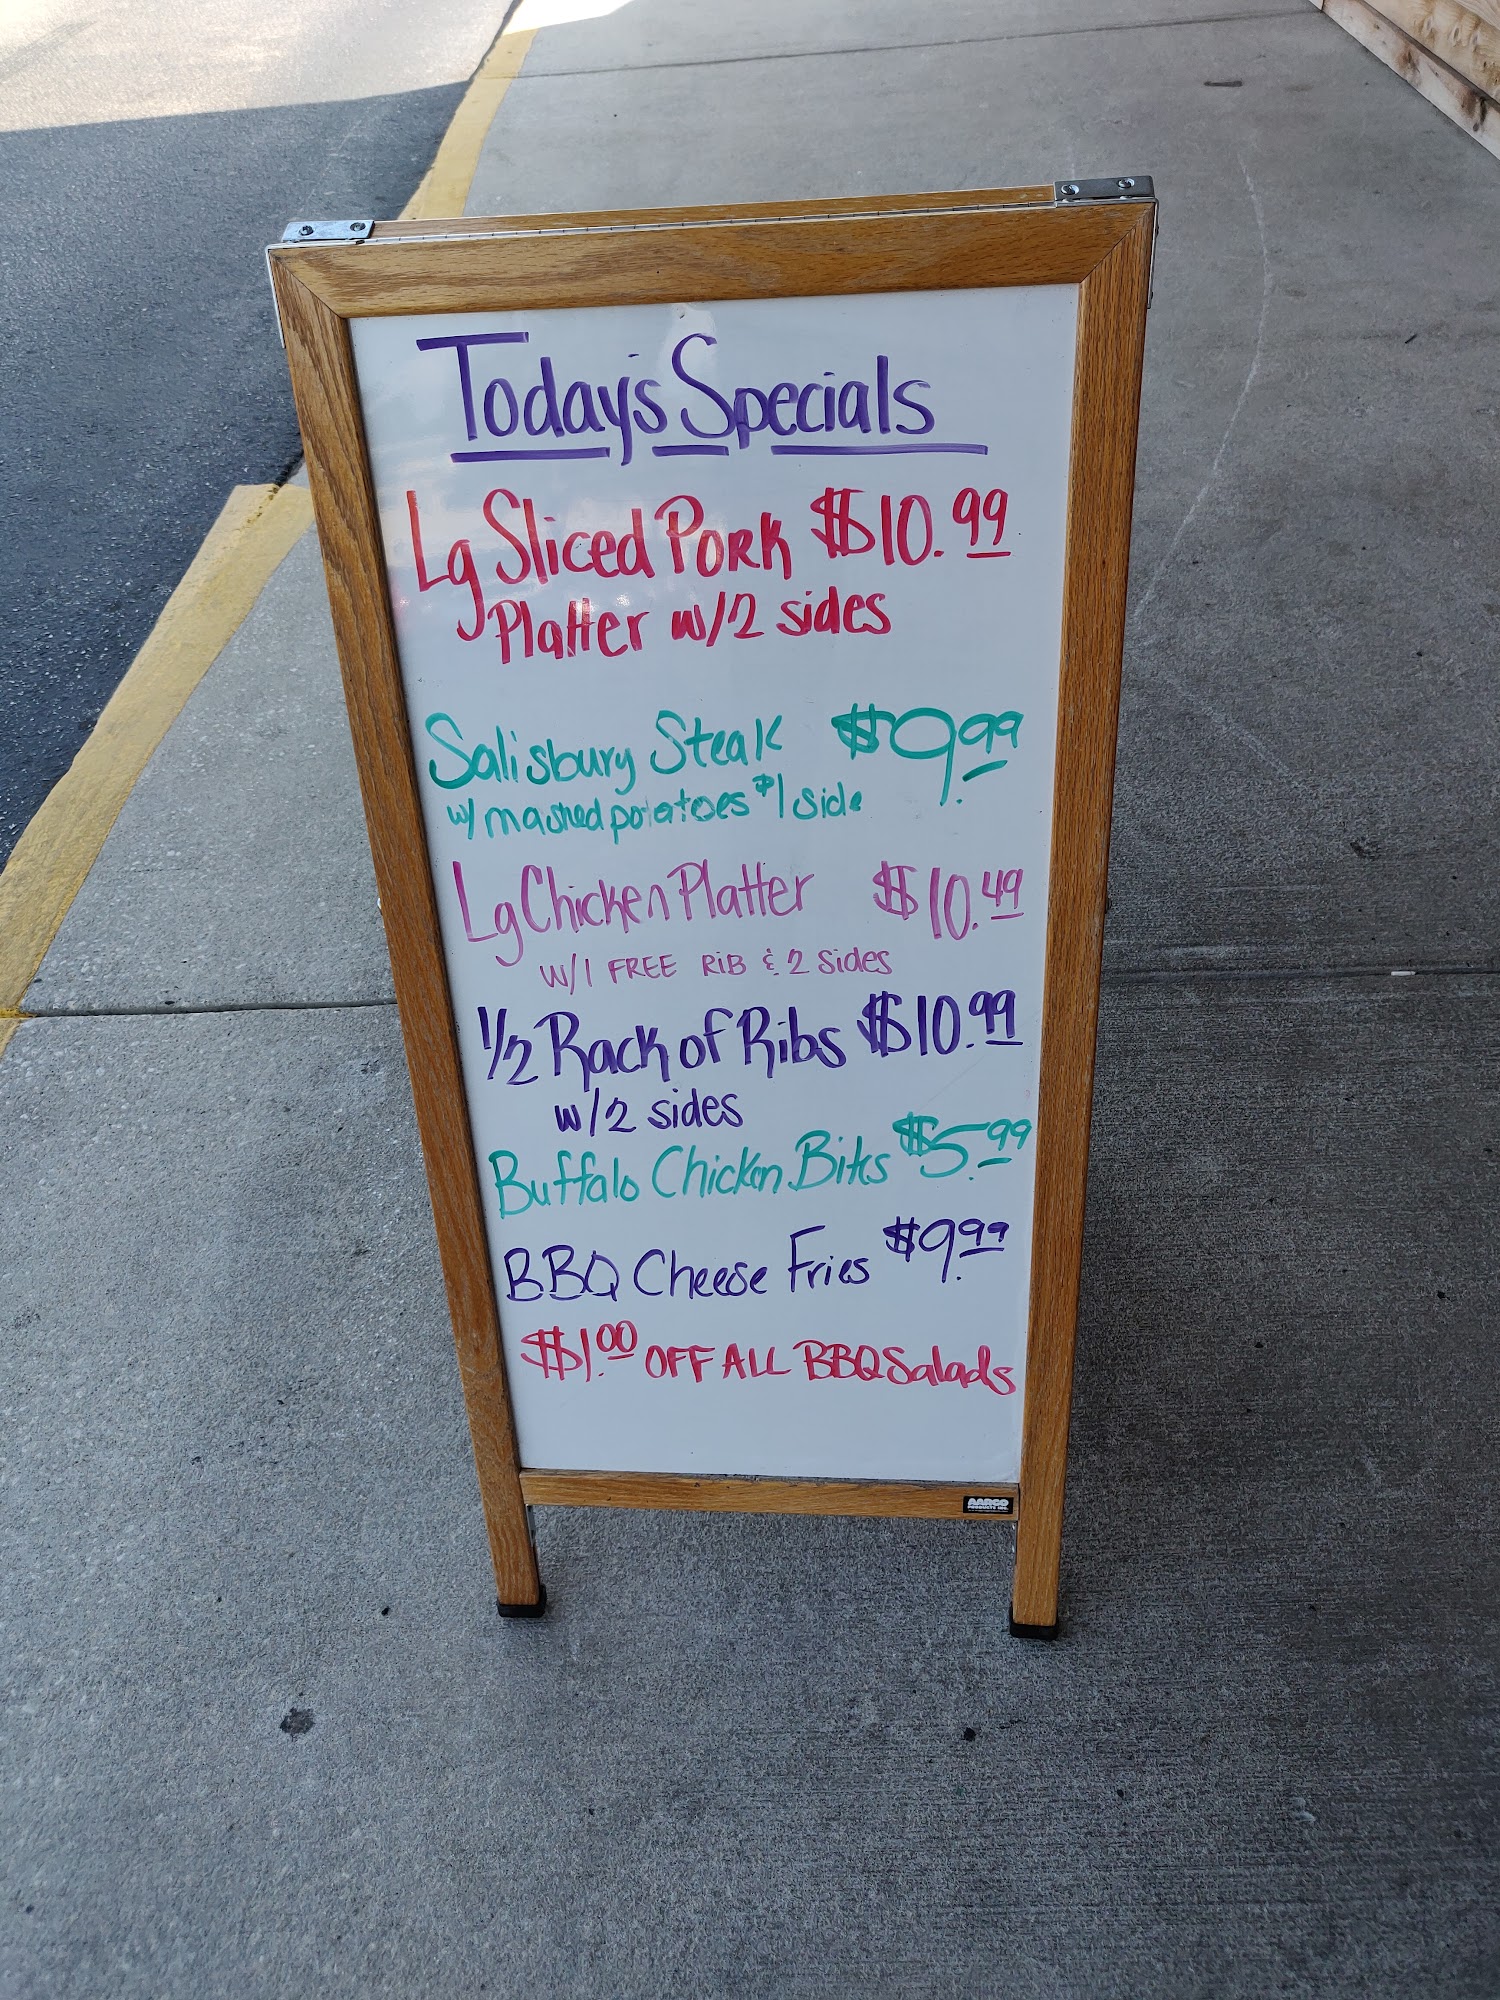 Today's Specials
Lg Sliced Pork $10.99
Platter w/2 sides
Salisbury Steak $9.99
w/ mashed potatoes $1 side
Lg Chicken Platter $10.49
w/1 FREE RiB & 2 sides
1/2 Rack of Ribs $10.99
w/2 sides
Buffalo Chicken Bites $5.99
BBQ Cheese Fries $9.99
$1.00 OFF ALL BBQ Salads
AARCO
PRODUCTS INC.